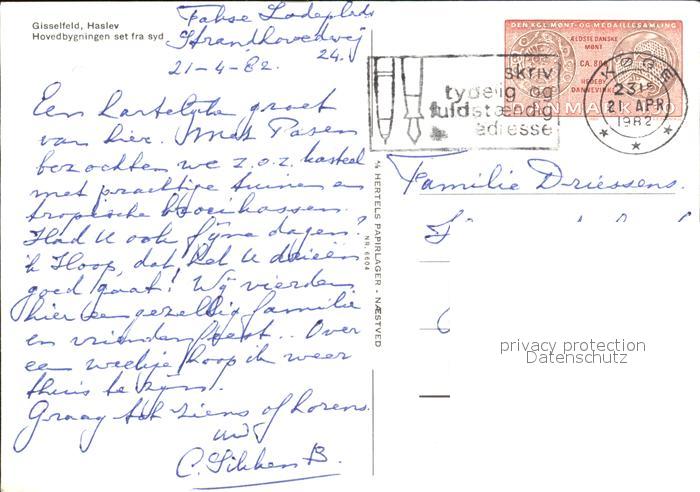 Gisselfeld, Haslev
Hovedbygningen set fra syd
Fakse Ladeplads
Strandhovedvej
24.
21-4-82.
Een hartelijke groet
van hier. Met Pasen
bezochten we z.o.z. kasteel
met prachtige tuinen en
tropische broeikassen.
Had U ook fijne dagen?
ik Hoop, dat het U drieën
goed gaat! Wij vierden
hier een gezellig familie
en vrienden feest.. Over
een weekje hoop ik weer
thuis te zijn.
Graag tot ziens of horens.
C. Sikkens B.
HERTELS PAPIRLAGER - NÆSTVED
NR. 6604
skriv
tydelig og
fuldstændig
adresse
DEN KGL. MØNT- OG MEDAILLESAMLING
ÆLDSTE DANSKE
MØNT
CA. 800
HEDEBY
DANNEVIRKE
DANMARK
KØGE
21 APR
1982
Familie Driessens.
privacy protection
Datenschutz